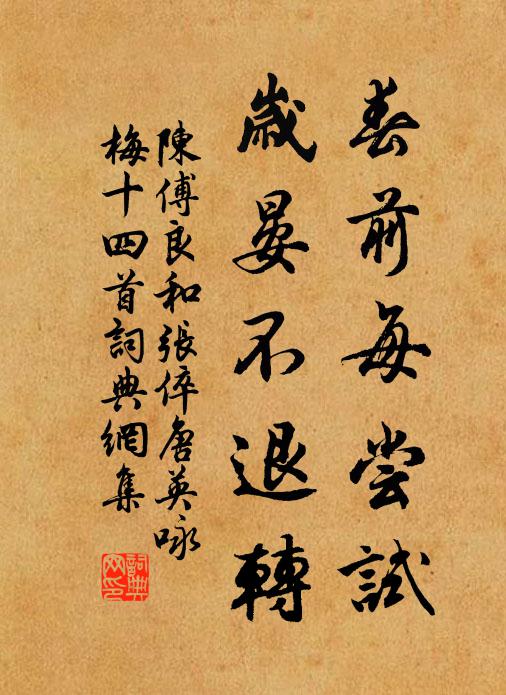 春前每尝試
歲晏不退轉
陳傅良和張倅唐英咏
梅十四首詞典網集
詞典
网印